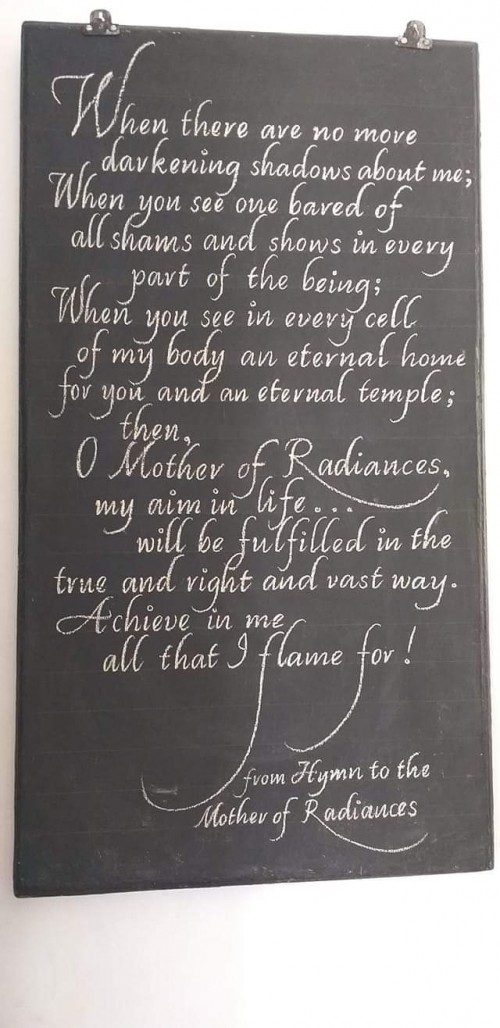 When there are no more
darkening shadows about me;
When you see one bared of
all shams and shows in every
part of the being;
When you see in every cell
of my body an eternal home
for you and an eternal temple;
then,
O Mother of Radiances,
my aim in life...
will be fulfilled in the
true and right and vast way.
Achieve in me
all that I flame for!
from Hymn to the
Mother of Radiances